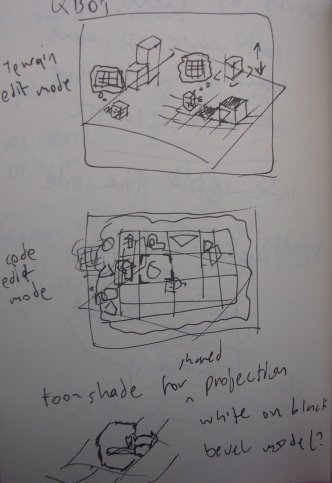 QBOY
terrain
edit mode
code
edit
mode
toonshade for shared projection
white on black
bevel model?